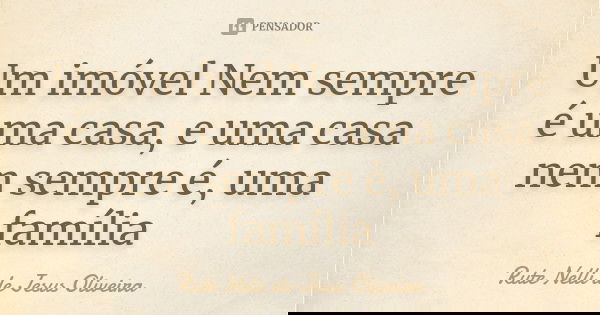 PENSADOR
Um imóvel Nem sempre
é uma casa, e uma casa
nem sempre é, uma
família
Rute Nelli de Jesus Oliveira